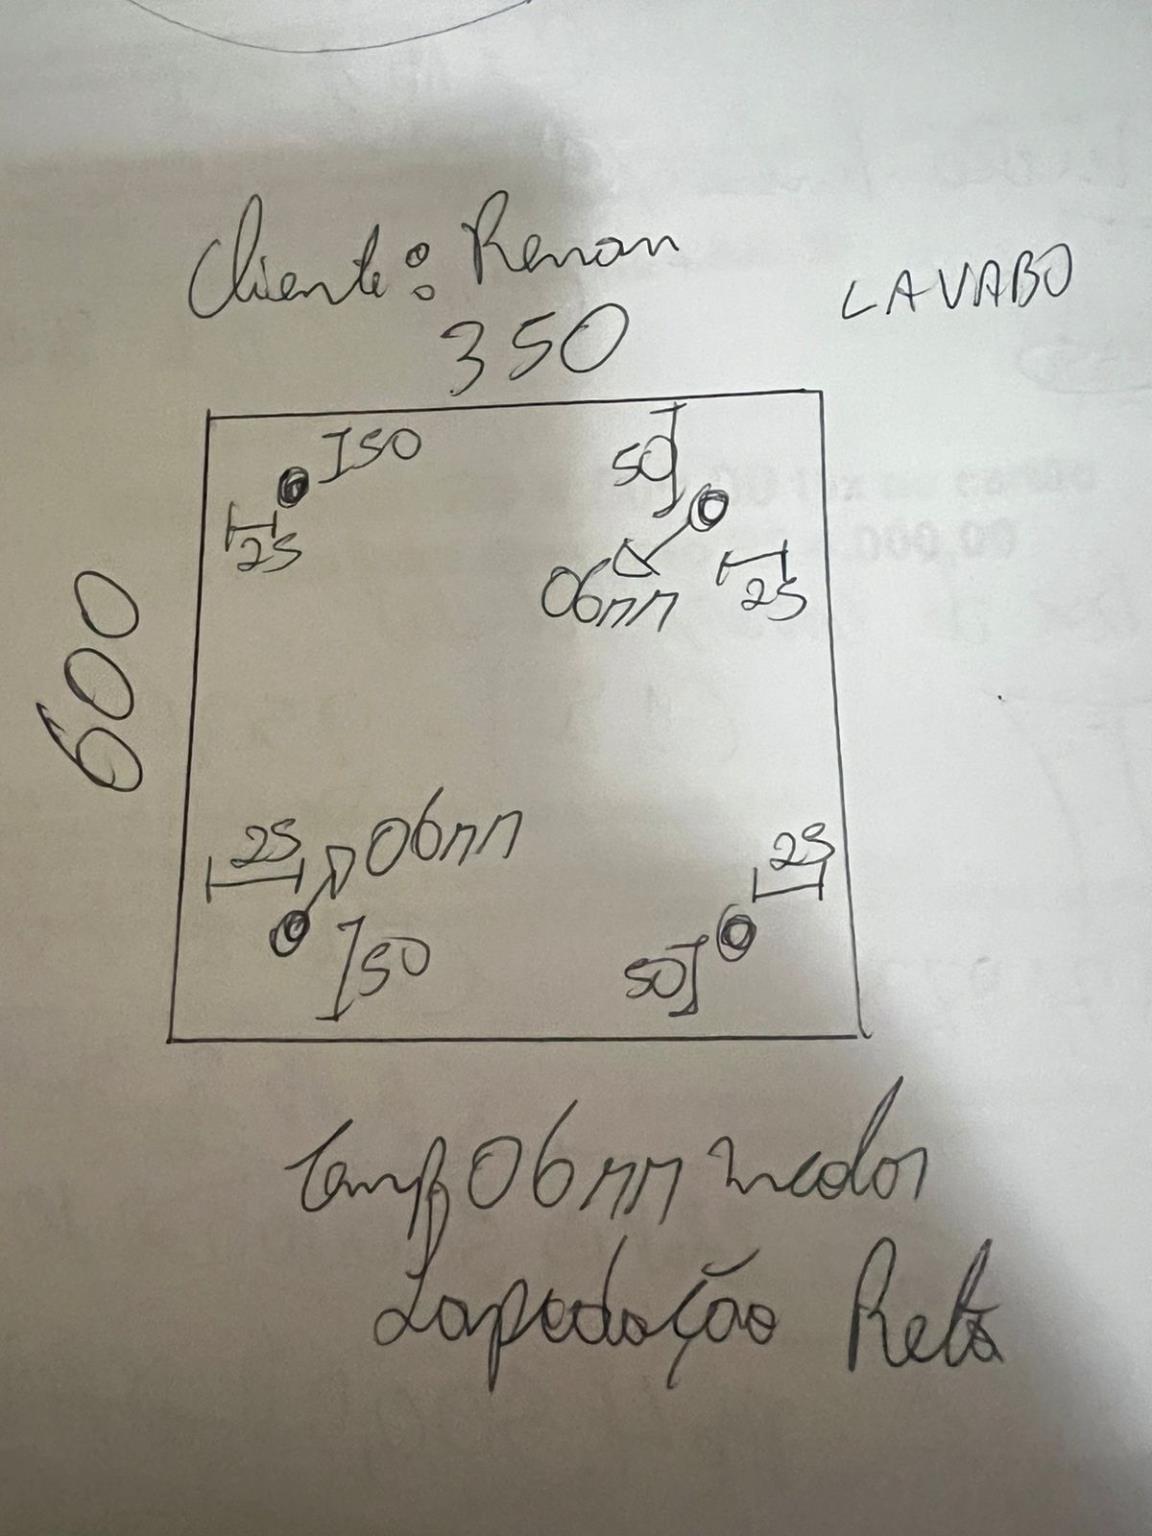 Cliente: Renan
LAVABO
350
50
50
25
06mm
25
600
25
06mm
25
50
50
Temp 06mm incolor
Lapedação Reta